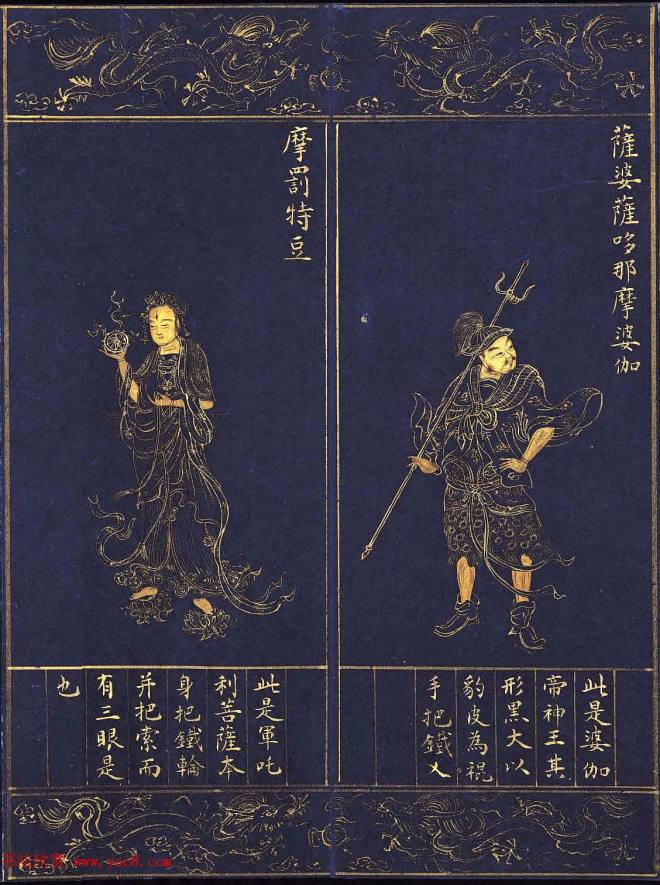 薩婆薩哆那摩婆伽
此是婆伽
帝神王其
形黑大以
豹皮為裩
手把鐵叉
摩罰特豆
此是軍吒
利菩薩本
身把鐵輪
并把索而
有三眼是
也
书法欣赏 www.yac8.com